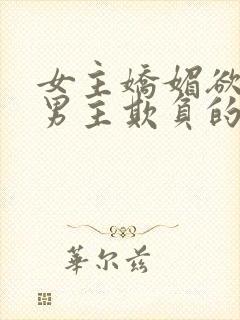 女主嬌媚欲
男主欺負的
華尔兹